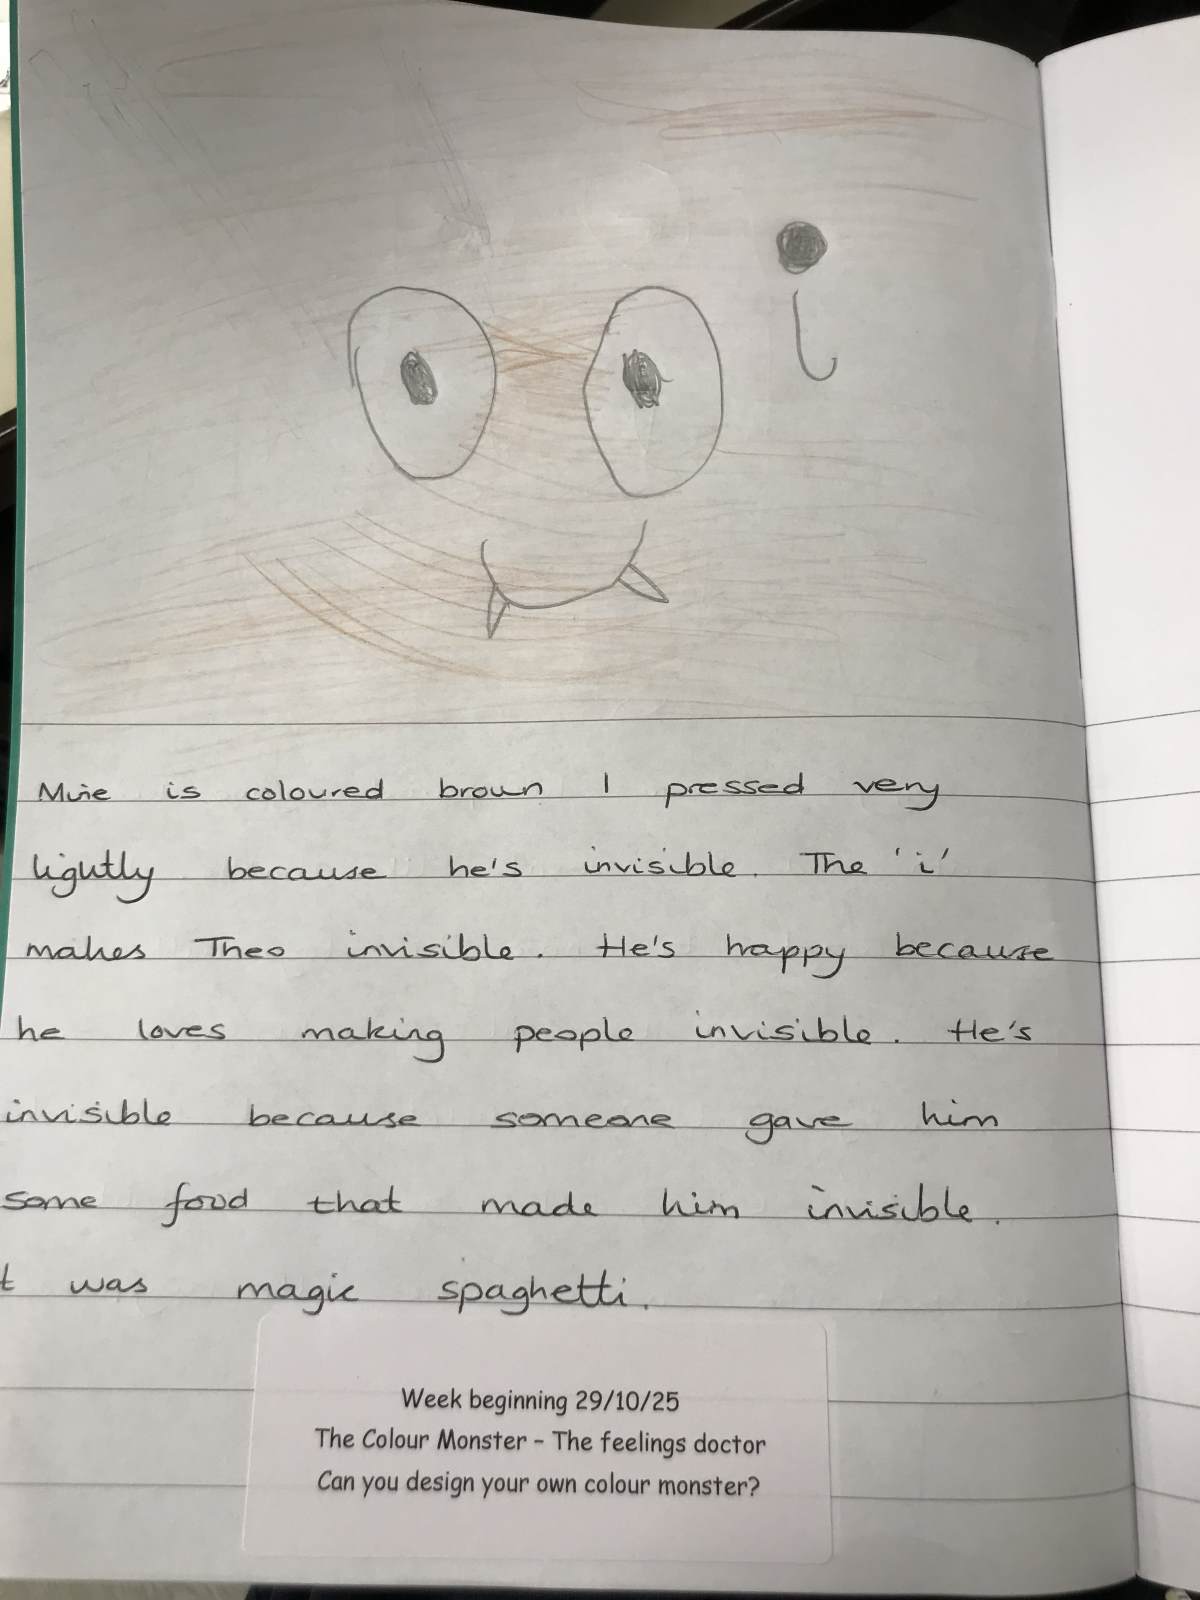 i
Mine is coloured brown I pressed very
lightly because he's invisible. The 'i'
makes Theo invisible. He's happy because
he loves making people invisible. He's
invisible because someone gave him
some food that made him invisible.
t was magic spaghetti.
Week beginning 29/10/25
The Colour Monster - The feelings doctor
Can you design your own colour monster?